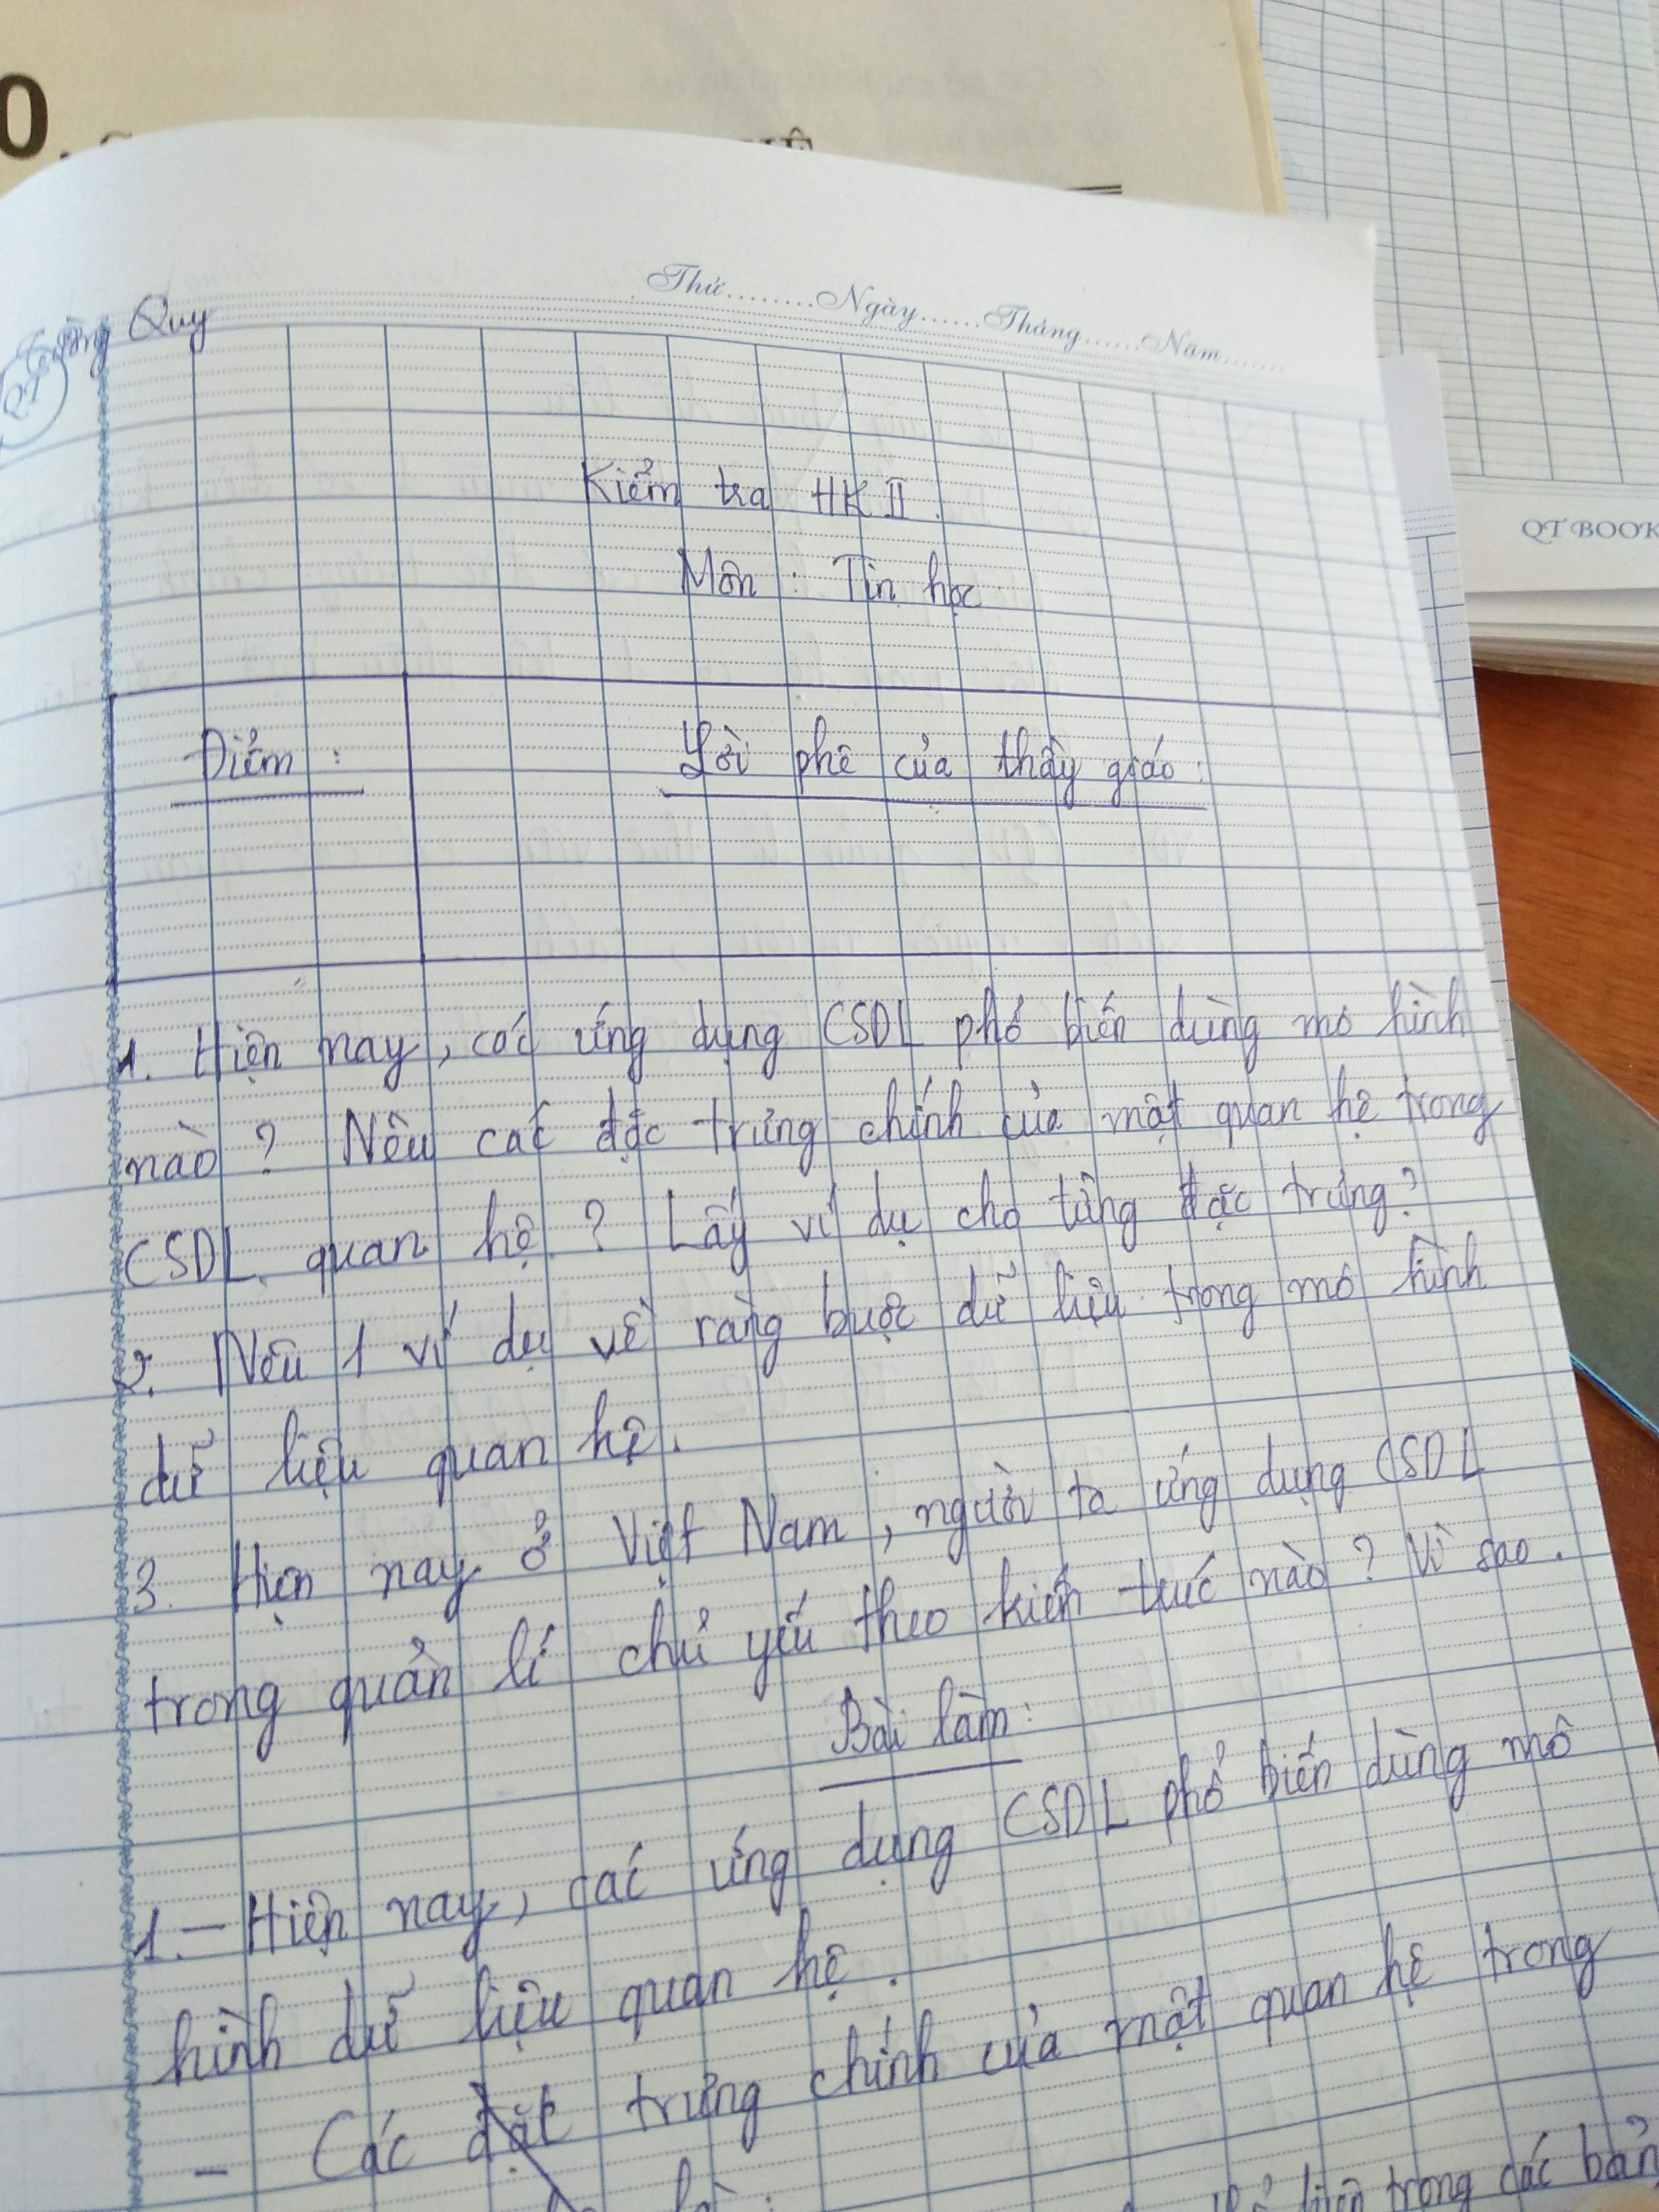 0.
Thứ........Ngày......Tháng......Năm.......
Quy
QT BOOK
Kiểm tra HK II.
Môn : Tin học
Điểm :
Lời phê của thầy giáo :
1. Hiện nay, các ứng dụng CSDL phổ biến dùng mô hình
nào ? Nêu các đặc trưng chính của một quan hệ trong
CSDL quan hệ ? Lấy ví dụ cho từng đặc trưng?
2. Nêu 1 ví dụ về ràng buộc dữ liệu trong mô hình
dữ liệu quan hệ.
3. Hiện nay ở Việt Nam, người ta ứng dụng CSDL
trong quản lí chủ yếu theo kiến trúc nào ? Vì sao.
Bài làm:
1. – Hiện nay, các ứng dụng CSDL phổ biến dùng mô
hình dữ liệu quan hệ.
– Các đặt trưng chính của một quan hệ trong
hiện trong các bản